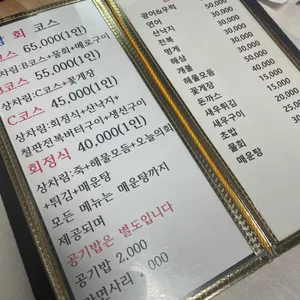 회 코스
코스 65,000(1인)
상차림:B코스+물회+메로구이
B코스 55,000(1인)
상차림:C코스+꽃게장
C코스 45,000(1인)
상차림:회정식+산낙지+
철판전복버터구이+생선구이
회정식 40,000(1인)
상차림:죽+해물모듬+오늘의회
+튀김+매운탕
모든 메뉴는 매운탕까지
제공되며
공기밥은 별도입니다
공기밥 2,000
라면사리
광어&우럭
연어
산낙지
전복
멍게
해삼
개불
해물모듬
꽃게장
돈까스
새우튀김
새우구이
초밥
물회
매운탕
50,000
30,000
30,000
30,000
30,000
30,000
40,000
15,000
20,000